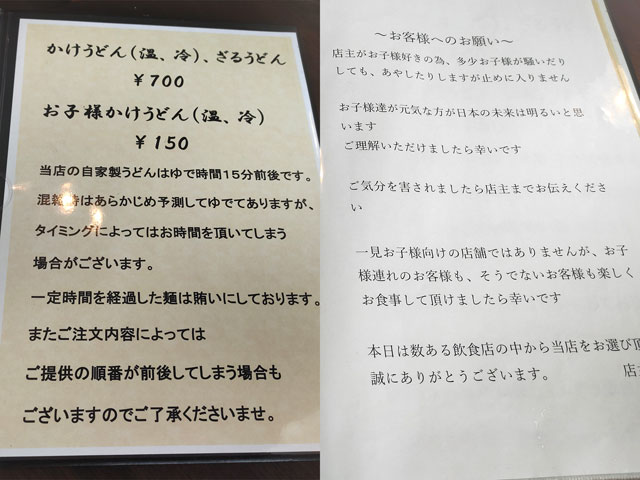 かけうどん(温、冷)、ざるうどん
￥700
お子様かけうどん(温、冷)
￥150
当店の自家製うどんはゆで時間15分前後です。
混雑時はあらかじめ予測してゆでてありますが、
タイミングによってはお時間を頂いてしまう
場合がございます。
一定時間を経過した麺は賄いにしております。
またご注文内容によっては
ご提供の順番が前後してしまう場合も
ございますのでご了承くださいませ。
～お客様へのお願い～
店主がお子様好きの為、多少お子様が騒いだり
しても、あやしたりしますが止めに入りません
お子様達が元気な方が日本の未来は明るいと思
います
ご理解いただけましたら幸いです
ご気分を害されましたら店主までお伝えくださ
い
一見お子様向けの店舗ではありませんが、お子
様連れのお客様も、そうでないお客様も楽しく
お食事して頂けましたら幸いです
本日は数ある飲食店の中から当店をお選び頂
誠にありがとうございます。
店